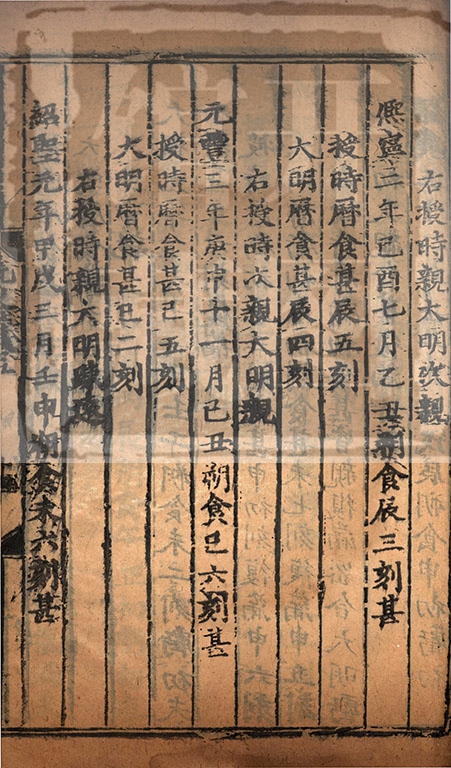 右授時親大明次親
熙寧二年己酉七月乙丑朔食辰三刻甚
授時曆食甚辰五刻
大明曆食甚辰四刻
右授時次親大明親
元豐三年庚申十一月己丑朔食巳六刻甚
授時曆食甚巳五刻
大明曆食甚巳二刻
右授時親大明疎遠
紹聖元年甲戌三月壬申朔食未六刻甚